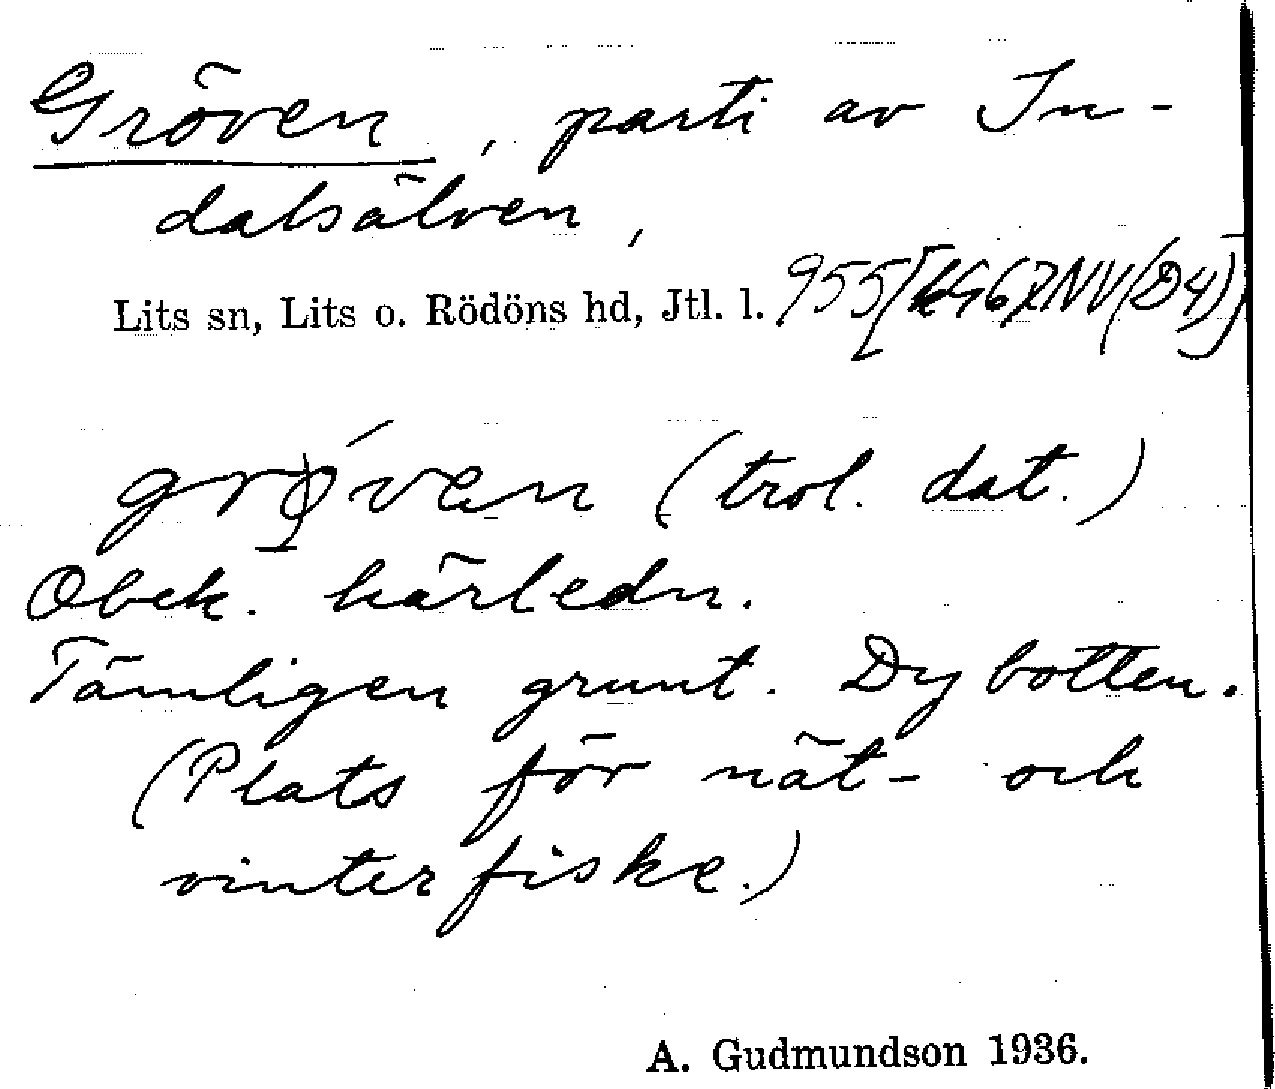 Gröven, parti av In-
dalsälven,
Lits sn, Lits o. Rödöns hd, Jtl. l. 955
(trol. dat.)
Obek. härledn.
Tämligen grunt. Dybotten.
(Plats för nät- och
vinterfiske.)
A. Gudmundson 1936.